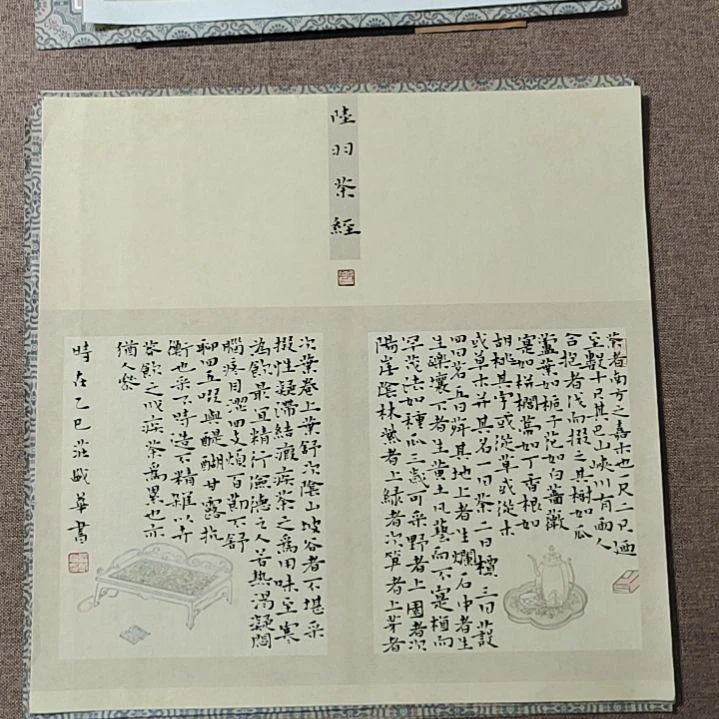 陸羽茶經
茶者南方之嘉木也尺二尺迺
至數十尺其巴山峽川有兩人
合抱者伐而掇之其樹如瓜
蘆葉如梔子花如白薔薇
實如栟櫚蒂如丁香根如
胡桃其字或從草或從木
或草木并其名一曰茶二曰檟三曰蔎
四曰茗五曰荈其地上者生爛石中者生
生礫壤下者生黃土凡藝而不實植而
罕茂法如種瓜三歲可采野者上園者次
陽崖陰林紫者上綠者次筍者上芽者
次葉卷上葉舒次陰山坡谷者不堪采
掇性凝滯結瘕疾茶之爲用味至寒
為飲最宜精行儉德之人若熱渴凝悶
腦疼目澀四支煩百節不舒
聊四五啜與醍醐甘露抗
衡也采不時造不精雜以卉
莽飲之成疾茶爲累也亦
猶人參
時在乙巳莊盛華書